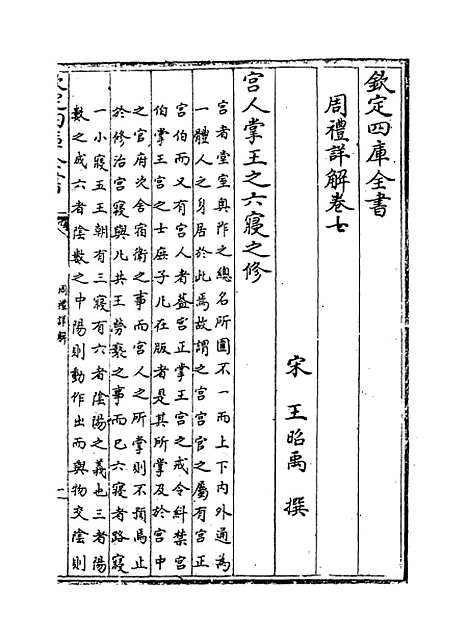 欽定四庫全書
周禮詳解卷七
宋 王昭禹 撰
宮人掌王之六寢之修
宮者堂室奥阼之總名所圍不一而上下内外通為
一體人之身居於此焉故謂之宮宮官之屬有宮正
宮伯而又有宮人者葢宮正掌王宮之戒令糾禁宮
伯掌王宮之士庶子凡在版者是其所掌及於宮中
之官府次舍宿衛之事而宮人之所掌則不預焉止
於修治宮寢與凡共王勞褻之事而已六寢者路寢
一小寢五王朝有三寢有六者陰陽之義也三者陽
數之成六者陰數之中陽則動作出而與物交陰則
周禮詳解